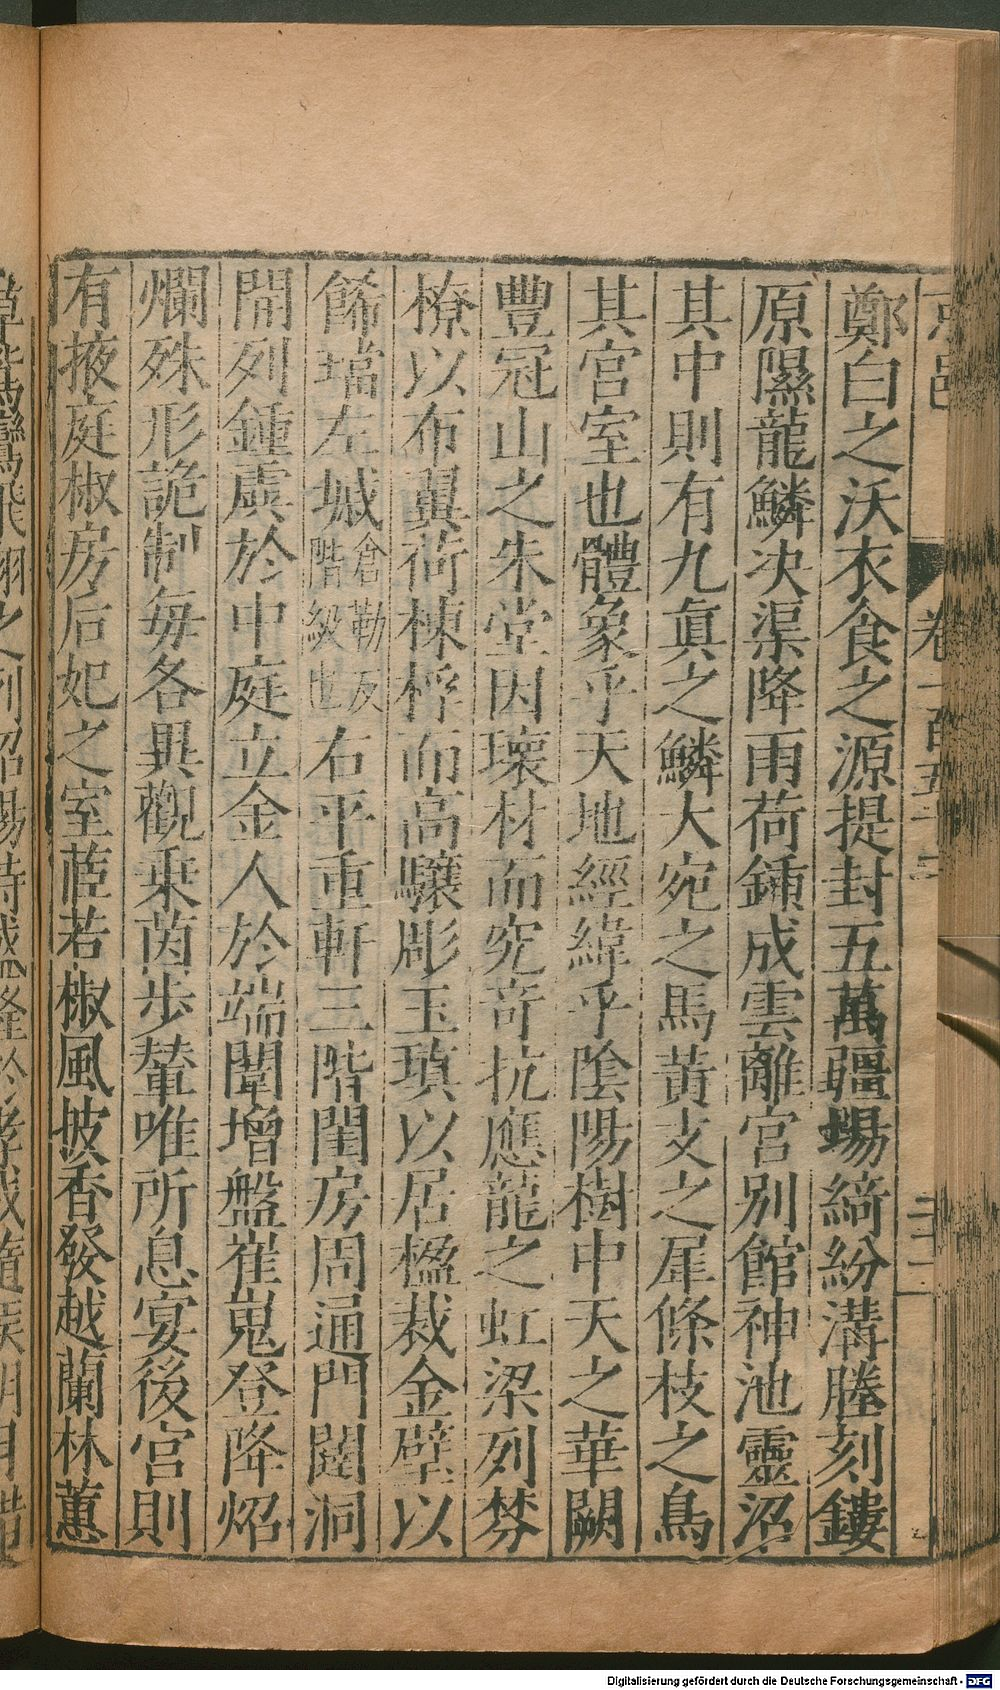 京邑
卷一百五十二
二十一
鄭白之沃衣食之源提封五萬疆場綺紛溝塍刻鏤
原隰龍鱗决渠降雨荷鍤成雲離宮別館神池靈沼
其中則有九眞之鱗大宛之馬黃支之犀條枝之鳥
其宮室也體象乎天地經緯乎陰陽樹中天之華闕
豐冠山之朱堂因瓌材而究竒抗應龍之虹梁列棼
橑以布翼荷棟桴而高驤彫玉瑱以居楹裁金壁以
餙璫左墄倉勒反階級也右平重軒三階閨房周通門闥洞
開列鍾虡於中庭立金人於端闈增盤崔嵬登降炤
爛殊形詭制每各異觀乗茵步輦唯所息宴後宮則
有掖庭椒房后妃之室茝若椒風披香發越蘭林蕙
Digitalisierung gefördert durch die Deutsche Forschungsgemeinschaft - DFG